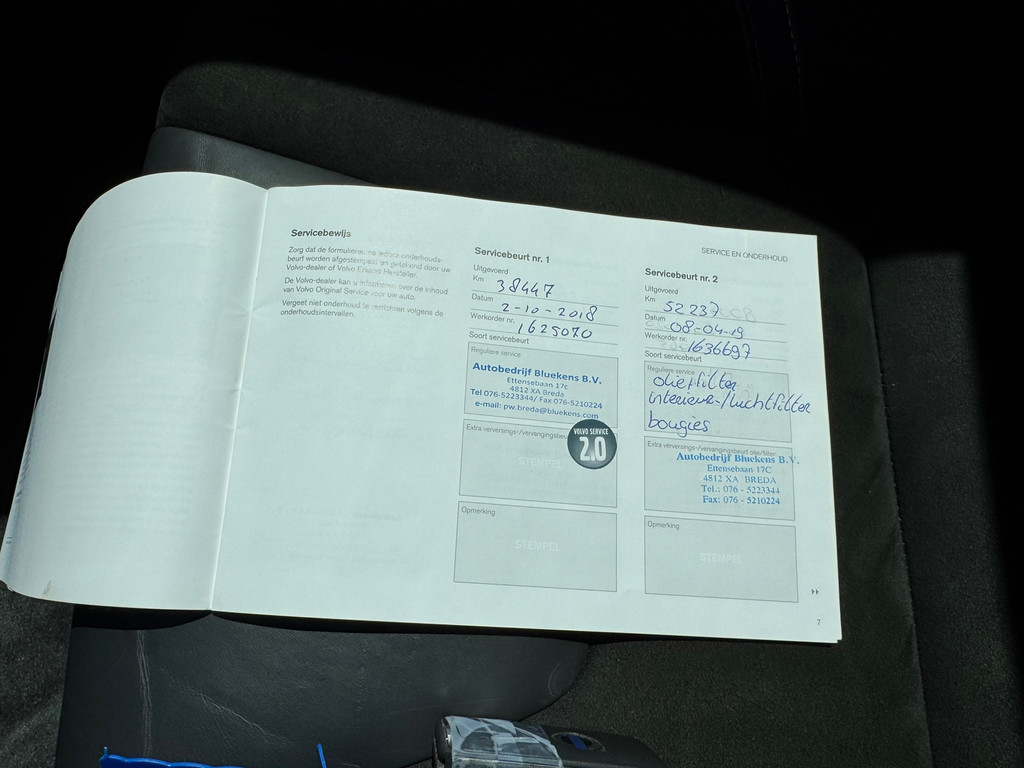 Servicebewijs
Zorg dat de formulieren na iedere onderhouds-
beurt worden afgestempeld en getekend door uw
Volvo-dealer of Volvo Erkend Hersteller.
De Volvo-dealer kan u informeren over de inhoud
van Volvo Original Service voor uw auto.
Vergeet niet onderhoud te verrichten volgens de
onderhoudsintervallen.
Servicebeurt nr. 1
Uitgevoerd
Km 38447
Datum 2-10-2018
Werkorder nr. 1625070
Soort servicebeurt
Reguliere service
Autobedrijf Bluekens B.V.
Ettensebaan 17c
4812 XA Breda
Tel 076-5223344/ Fax 076-5210224
e-mail: pw.breda@bluekens.com
Extra verversings-/vervangingsbeurt
VOLVO SERVICE
2.0
STEMPEL
Opmerking
STEMPEL
SERVICE EN ONDERHOUD
Servicebeurt nr. 2
Uitgevoerd
Km 52237
Datum 08-04-19
Werkorder nr. 1636697
Soort servicebeurt
Reguliere service
olie+filter
interieur-/luchtfilter
bougies
Extra verversings-/vervangingsbeurt olie/filter
Autobedrijf Bluekens B.V.
Ettensebaan 17C
4812 XA BREDA
Tel.: 076 - 5223344
Fax: 076 - 5210224
Opmerking
STEMPEL
7